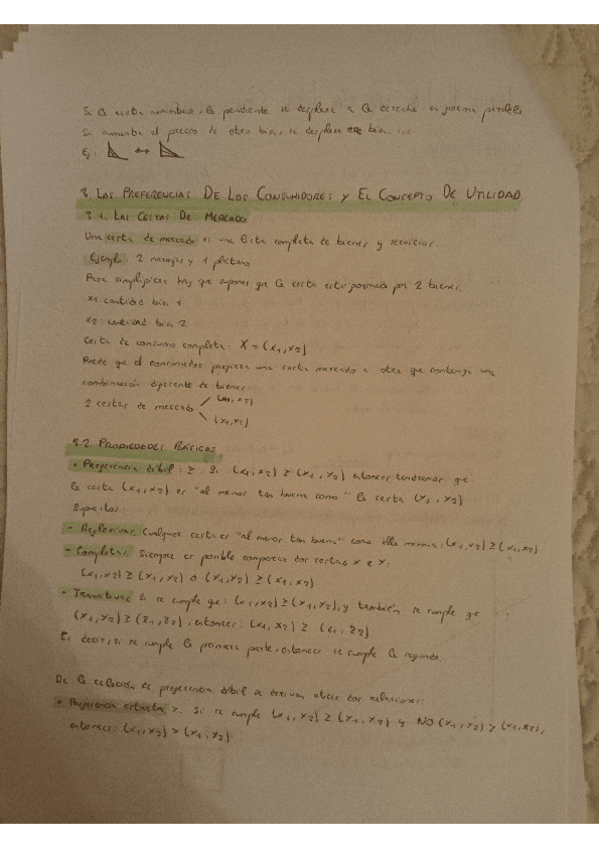 Si la renta aumentara, la pendiente se desplaza a la derecha en forma paralela
Si aumenta el precio de otro bien, se desplaza ese bien.
Ej:
3. LAS PREFERENCIAS DE LOS CONSUMIDORES Y EL CONCEPTO DE UTILIDAD
3.1. LAS CESTAS DE MERCADO
Una cesta de mercado es una lista completa de bienes y servicios.
Ejemplo: 2 naranjas y 1 plátano
Para simplificar hay que suponer que la cesta está formada por 2 bienes.
x1 cantidad bien 1
x2 cantidad bien 2
Cesta de consumo completa: X = (x1, x2)
Puede que el consumidor prefiera una cesta mercado a otra que contenga una
combinación diferente de bienes
2 cestas de mercado (x1, x2)
(y1, y2)
3.2. PROPIEDADES BÁSICAS
• Preferencia débil: ≥. Si (x1, x2) ≥ (y1, y2) entonces tendremos que
la cesta (x1, x2) es "al menos tan buena como" la cesta (y1, y2)
Supuestos:
- Reflexivas: Cualquier cesta es "al menos tan buena" como ella misma: (x1, x2) ≥ (x1, x2)
- Completas: Siempre es posible comparar dos cestas X e Y:
(x1, x2) ≥ (y1, y2) o (y1, y2) ≥ (x1, x2)
- Transitivas: Si se cumple que: (x1, x2) ≥ (y1, y2), y también se cumple que
(y1, y2) ≥ (z1, z2), entonces: (x1, x2) ≥ (z1, z2)
Es decir, si se cumple la primera parte, entonces se cumple la segunda.
De la relación de preferencia débil se derivan otras dos relaciones:
• Preferencia estricta: >. Si se cumple (x1, x2) ≥ (y1, y2) y NO (y1, y2) ≥ (x1, x2),
entonces: (x1, x2) > (y1, y2)